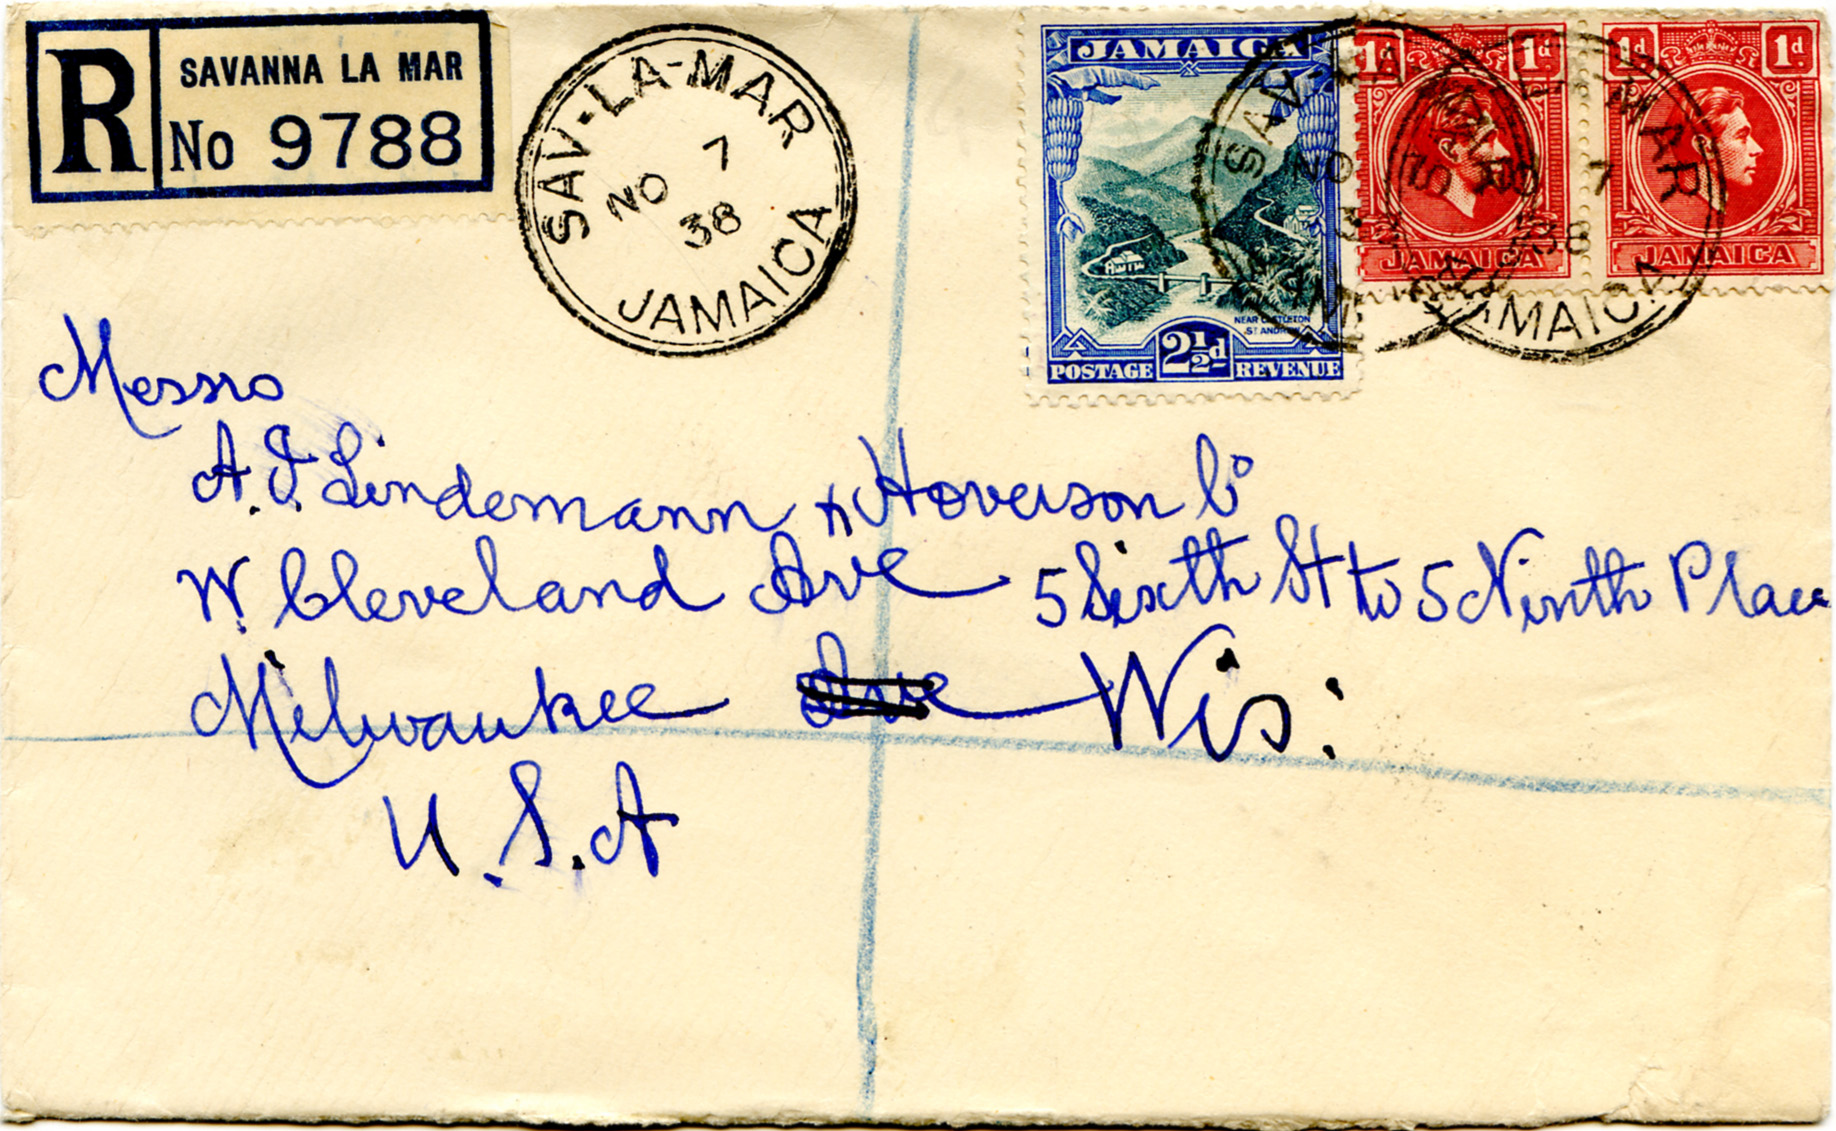 R
SAVANNA LA MAR
No 9788
SAV-LA-MAR
NO 7
38
JAMAICA
JAMAICA
NEAR CASTLETON
ST ANDREW
POSTAGE 2½d REVENUE
1d 1d
JAMAICA
1d 1d
JAMAICA
SAV-LA-MAR
NO 7
38
JAMAICA
SAV-LA-MAR
NO 7
38
JAMAICA
Messrs
A.J. Lindemann & Hoverson Co
W. Cleveland Ave 5 Sixth St to 5 Ninth Place
Milwaukee Wis:
U.S.A